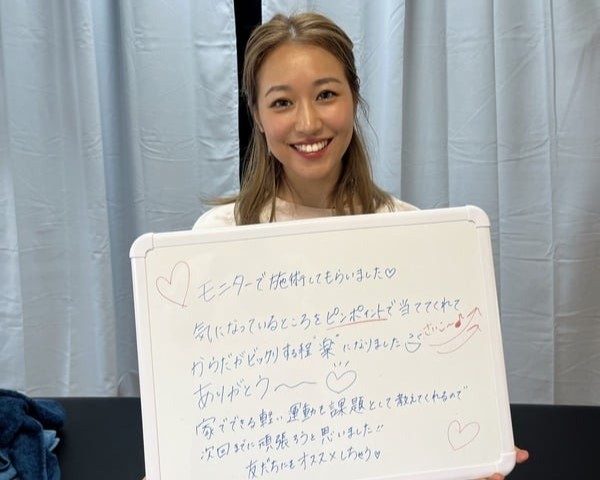 モニターで施術してもらいました♡
気になっているところをピンポイントで当ててくれて
からだがビックリする程"楽"になりました
さいこ〜
ありがとう〜♡
家でできる軽い運動も課題として教えてくれるので
次回までに頑張ろうと思いました!!
友だちにもオススメしちゃう♡